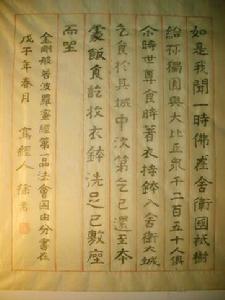 如是我聞一時佛在舍衛國祇樹
給孤獨園與大比丘衆千二百五十人俱
尒時世尊食時著衣持鉢入舍衛大城
乞食於其城中次第乞已還至本
處飯食訖收衣鉢洗足已敷座
而坐
金剛般若波羅蜜經第一品法會因由分書在
戊午年春月 寫經人 徐